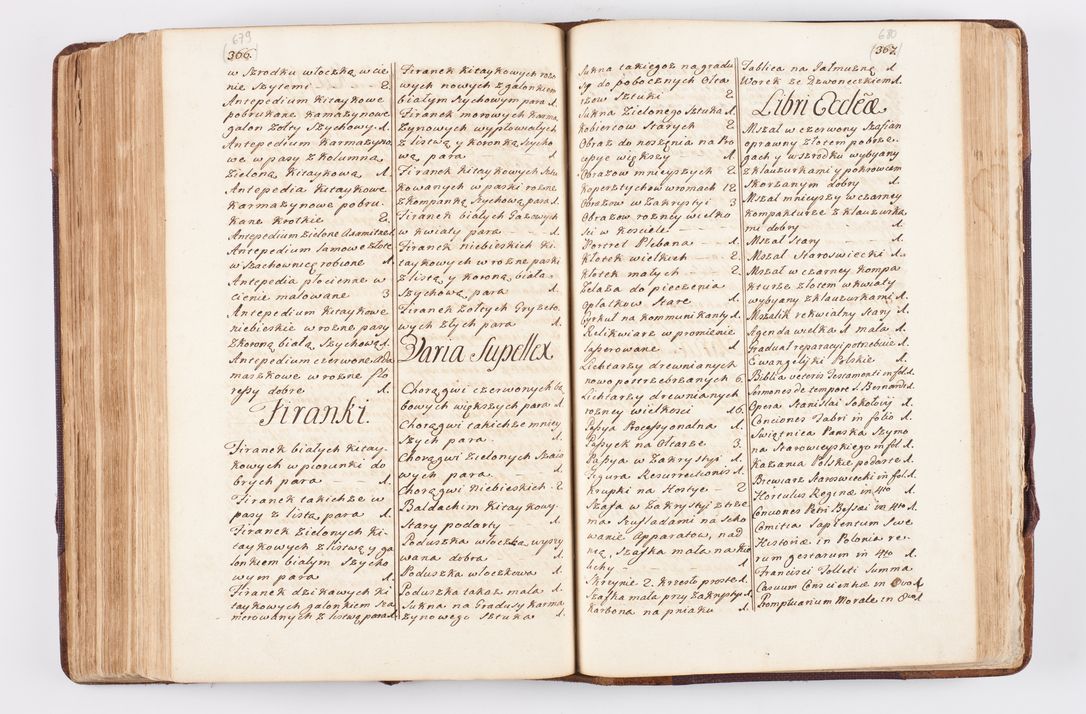 679
366.
w szrodku włoczką w cie
nie szytemi 2.
Antepedium kitaykowe
pobrukane karmazynowe
galon żołty szychowy 1.
Antepedium karmazyno
we w pasy z kolumną
zieloną kitaykową 1
Antepedia kitaykowe
karmazynowe pobru
kane krotkie 2.
Antepedium zielone Adamitzk 1.
Antepedium samowe złote
w szachownicę robione 1.
Antepedia płocienne w
cienie malowane 3
Antepedium kitaykowe
niebieskie w rożne pasy
z koroną białą szychową 1.
Antepedium czerwone Ada
maszkowe w rożne flo
resy dobre 1.
Firanki.
Firanek białych kitay-
kowych w piorunki do
brych para 1.
Firanek takichże w
pasy z listą para 1.
Firanek zielonych ki-
taykowych z listwą y ga
lonkiem białym szycho
wym para 1.
Firanek dzikawych ki
taykowych galonkiem sza
merowanych z listwą para 1.
Firanek kitaykowych rożo
wych nowych z galonkiem
białym szychowym para 1.
Firanek morowych karma
zynowych wypłowiałych
z listwą y koronką szycho
wą para 1
Firanek kitaykowych sztu
kowanych w paski rożne
z kompanką szychową para 1.
Firanek białych gazowych
w kwiaty para 1.
Firanek niebieskich ki-
taykowych w rożne paski
z listą y koroną białą
szychową para 1.
Firanek żołtych gryzeto
wych złych para 1.
Varia Supellex
Chorągwi czerwonych ba
bowych większych para 1.
Chorągwi takichże mniey
szych para 1.
Chorągwi zielonych staro
wych para 1.
Chorągwi niebieskich 2.
Baldachim kitaykowy
stary podarty 1.
Poduszka włoczką wyszy
wana dobra 1.
Poduszka włoczkowa 1.
Poduszka takaż mała 1.
Sukna na gradusy karma
zynowego sztuka 1.
680
367.
Sukna takiegoż na gradu
sy do pobocznych Ołta
rzow sztuki 2.
Sukna zielonego sztuka 1.
Kobiercow starych 2.
Obraz do noszenia na Pro
cessye większy 1.
Obrazow mnieyszych 2.
Kopersztychow w ramach 12
Obrazow w zakrystyi 3
Obrazow rożney wielko
sci w kosciele
Portret Plebana 1.
Klotek wielkich 2.
Klotek małych 2.
Żelaza do pieczenia
opłatkow stare 1.
Cyrkuł na kommunikanty 1.
Relikwiarz w promienie
laserowane 1.
Lichtarzy drewnianych
nowo posrzebrzanych 6.
Lichtarzy drewnianych
rożney wielkosci 16.
Passya Processyonalna 1.
Passyek na Ołtarze 3.
Passya w zakrystyi 1.
Figura Resurrectionis 1.
Krupki na Hostye 2
Szafa w zakrystyi z trze
ma szufladami na scho
wanie apparatow, nad
nią, szafka mała na kie
lichy 1.
Skrzynie 2. krzesło proste 1.
Szafka mała przy zakrystyi 1.
Karbona na pniaku 1.
Tablica na jałmużnę 1
Worek ze dzwoneczkiem 1.
Libri Eccleæ
Mszał w czerwony szafian
oprawny złotem po brze-
gach y w szrodku wybyany
z klauzurkami y pokrowcem
skorzanym dobry 1.
Mszał mnieyszy w czarney
kompanturze z klauzurka
mi dobry 1.
Mszał stary 1.
Mszał staroswiecki 1.
Mszał w czarney kompa
kturze złotem w kwiaty
wybyany z klauzurkami 1.
Mszalik rekwialny stary 1.
Agenda wielka 1 mała 1.
Gradual reparacyi potrzebuie 1.
Ewangelijki Polskie 1.
Biblia veteris Testamenti in fol. 1.
Sermones de tempore S. Bernardi 1.
Opera Stanislai Sokołowij 1.
Conciones Fabri in folio 1.
Swiątnica Panska Szymo
na Starowieyskiego in fol. 1.
Kazania Polskie podarte 1.
Brewiarz starowiecki in fol. 1.
Hortulus Reginæ in 4to 1.
Conciones Petri Bessæi in 4to 1.
Comitia Sapientum sive
Historiæ in Polonia re-
rum gestarum in 4to 1.
Francisci Tolleti Summa
Casuum Conscientiæ in 8vo 1
Promptuarium Morale in 8vo 1